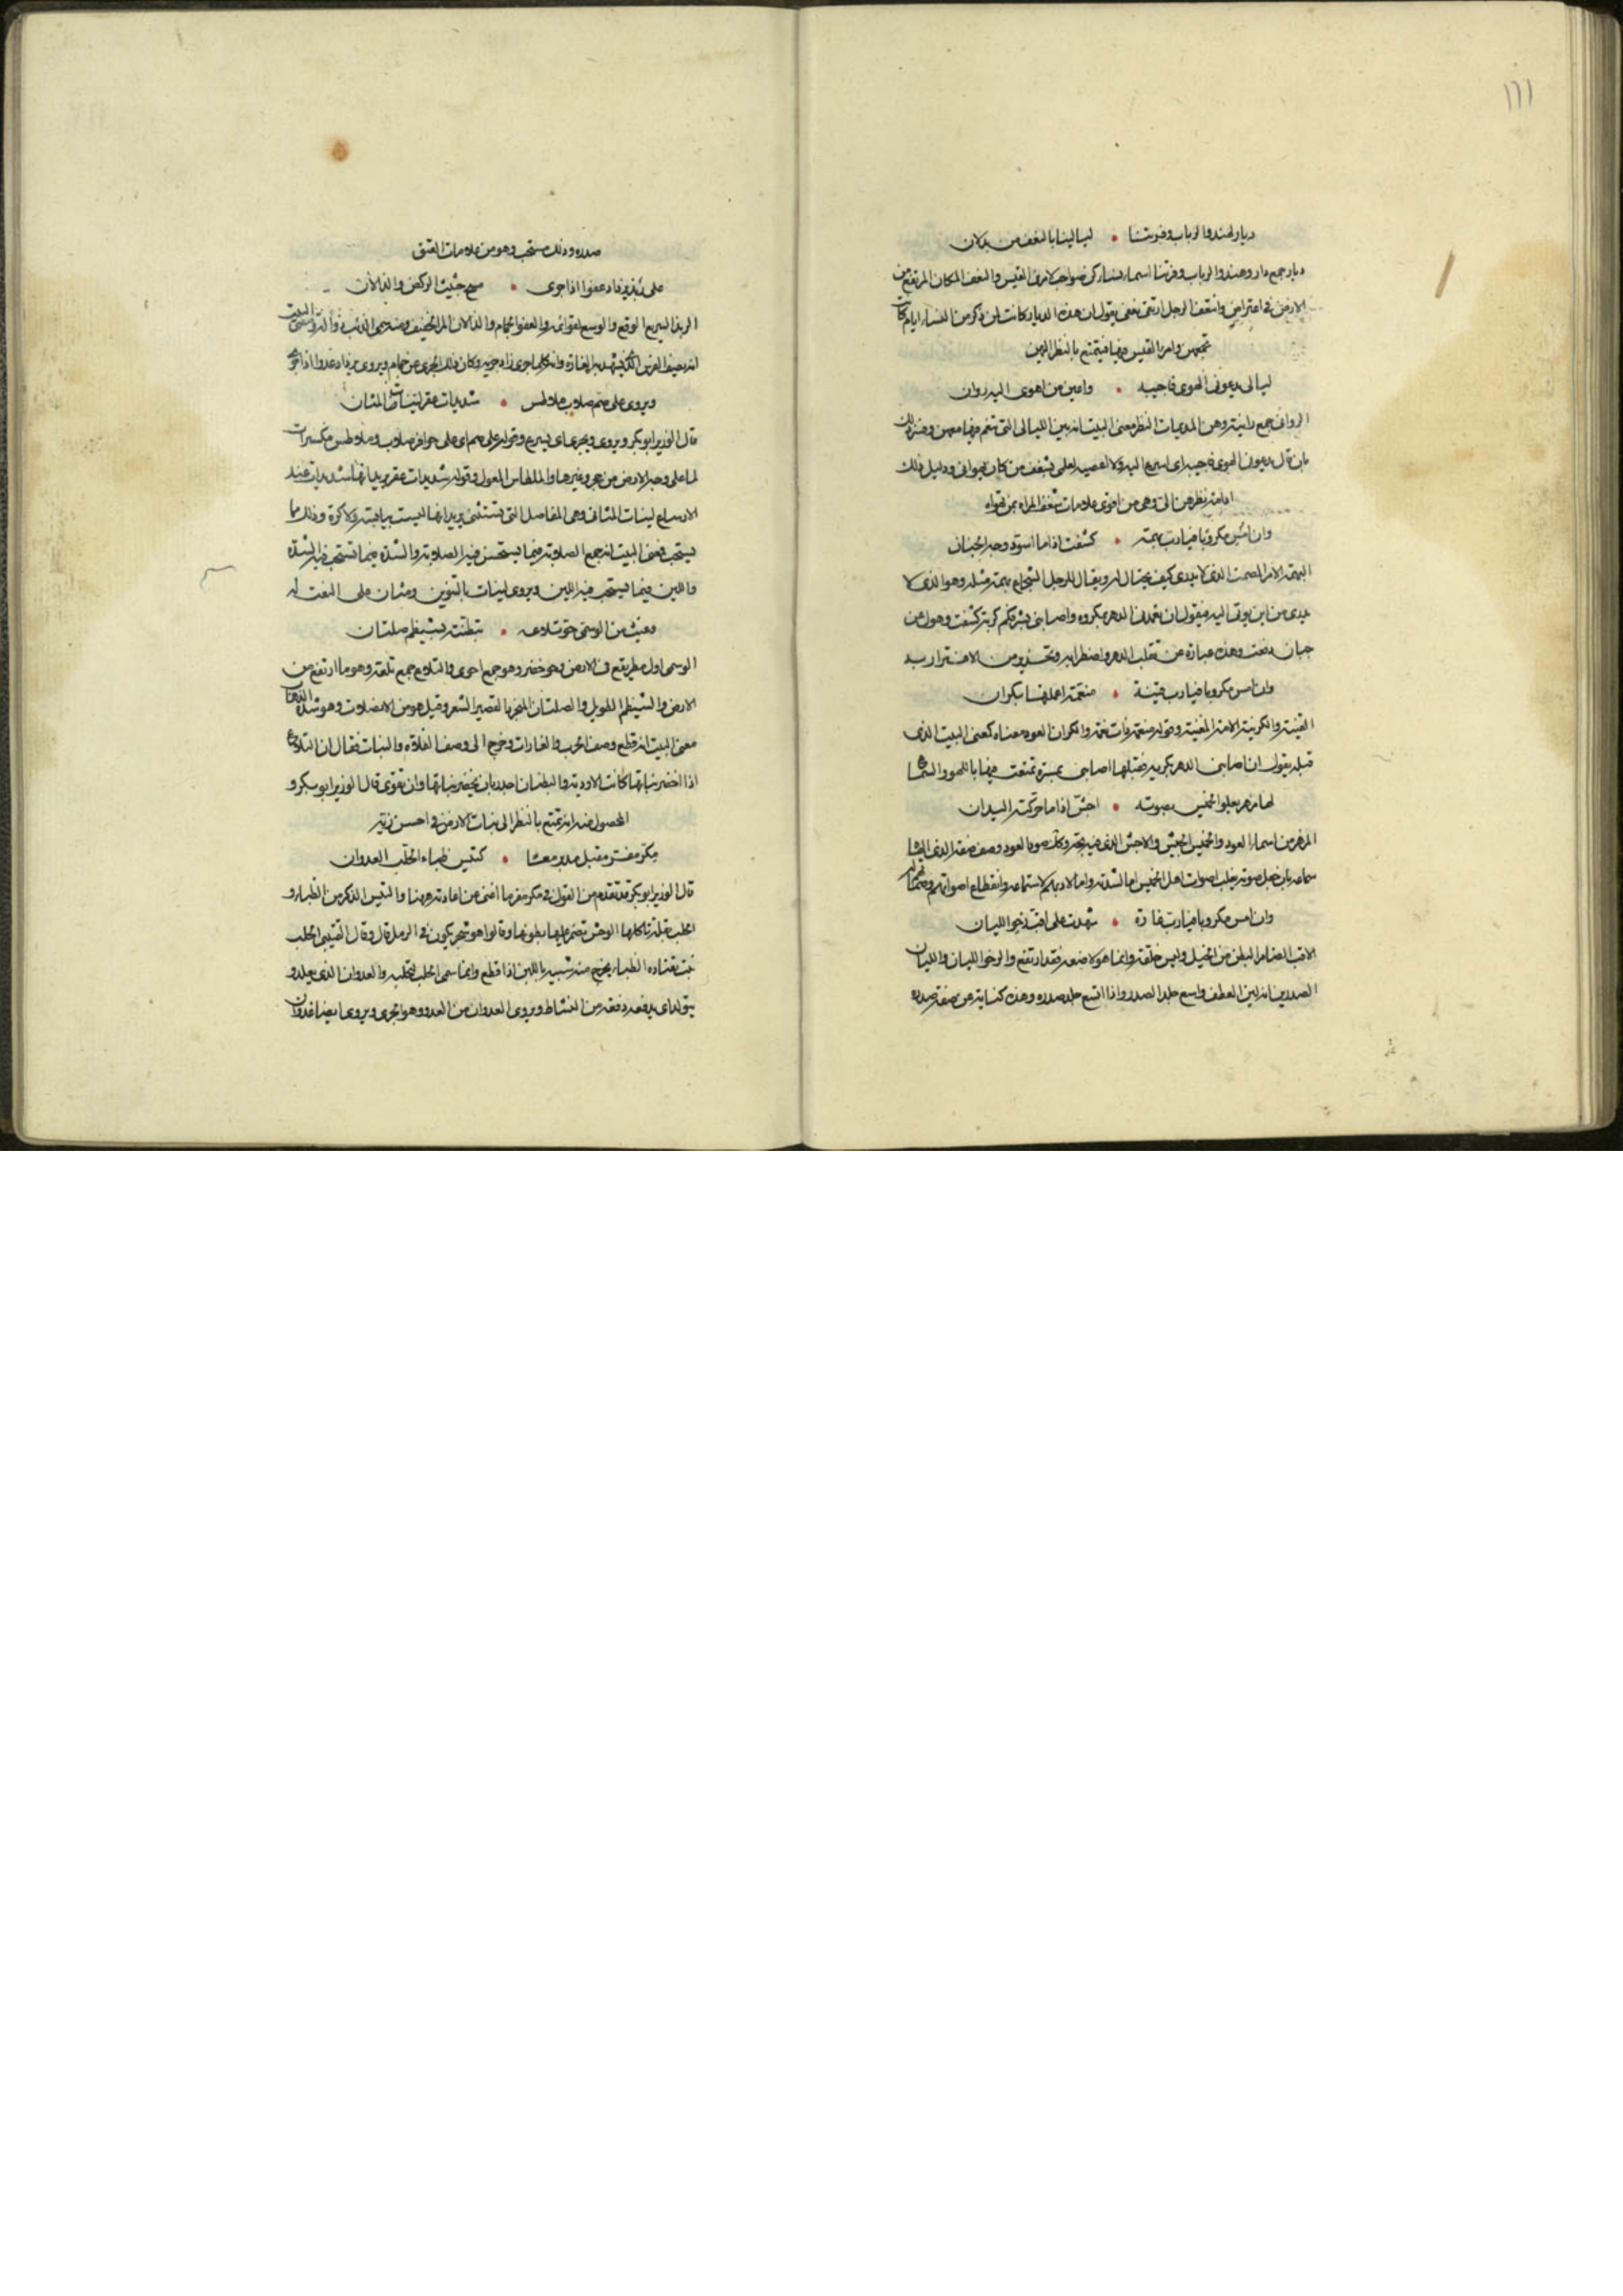 ١١١
ديار لهند والرباب وفرتنا • ليالينا بالنعف من بدلان
ديار جمع دار وهند والرباب وفرتنا اسماء نساء كن صواحب لامرئ القيس والنعف المكان المرتفع من
الارض في اعتراض وانتعف الرجل ارتقى نعفا يقول ان هذه الديار كانت لمن ذكر من النساء ايام كان
تجمعهن وامرا القيس فيها فيتمتع بالنظر اليهن
ليالي يدعوني الهوى فاجيبه • واعين من اهوى الي رواني
الرواني جمع رانية وهن المديمات النظر معنى البيت انه بين الليالي التي تنعم فيها معهن
بان قال يدعوني الهوى فاجيبه اي اسرع اليه ولا اعصيه لعلمي بشغف من كان يهواني ودليل ذلك
ادامة نظرهن الي وهي من اقوى علامات شغف المراة بمن تهواه
وان امس مكروبا فيا رب بهمة • كشفت اذا ما اسود وجه الجبان
البهمة الامر المصمت الذي لا يدرى كيف يحتال له ويقال للرجل الشجاع بهمة مثله وهو الذي لا
يدرى من اين يوتى اليه فيقول ان تعمدني الدهر بمكروه واصابني بشره فكم كربة كشفت وهول عن
جبان دفعت وهذه عبارة عن تقلب الدهر واضطرابه وتحذير من الاغترار به
وان امس مكروبا فيا رب قينة • منعمة اعملتها بكران
القينة والكرينة الامة المغنية وقوله منعمة ذات نعمة والكران العود معناه كمعنى البيت الذي
قبله يقول ان اصابني الدهر بكربه فقبلها اصابني بمسرة تمتعت فيها باللهو والسماع
لها مزهر يعلو الخميس بصوته • اجش اذا ما حركته اليدان
المزهر من اسماء العود والخميس الجيش والاجش الذي فيه بحة وكذلك صوت العود وصف صفة الذي
سماعه بان جعل صوته يغلب اصوات اهل الخميس اما لشدته واما لادبهم لاستماعه وانقطاع اصواتهم
وان امس مكروبا فيا رب غارة • شهدت على اقب رخو اللبان
الاقب الضامر البطن من الخيل وليس خلقة وانما هو لا ضعه فقد ارتفع والرخو اللبان واللبان
الصدر يريد انه لين العطف واسع جلد الصدر واذا اتسع جلد صدره وهذه كناية عن صفة صدره
صدره وذلك مستحب وهو من علامات العتق
على ربذ يزداد عفوا اذا جرى • مسح حثيث الركض والذالان
الربذ السريع الوقع والوسع لقوائمه والعفو الجمام والذالان المر الخفيف ومنه سمي الذئب ذؤالة ومعنى البيت
انه يصف الفرس الذي شهد به الغارة وانه كلما جرى زاد جريه وكان ذلك الجري عن جمام ويروى يزداد عدوا اذا جرى
ويروى على صم صلاب ملاطس • شديدات عقد لينات المثان
قال الوزير ابو بكر ويروى ويجري اي يسرع وقوله على صم اي على حوافر صلاب وملاطس مكسرات
لما على وجه الارض من حجر وغيرها والملطاس المعول وقوله شديدات عقد يريد انها شديدات عند
الارساغ لينات المثاني وهي المفاصل التي تنثني يريد انها ليست بيابسة ولا كزة وذلك مما
يستحب فمعنى البيت انه جمع الصلابة فيما يستحسن فيه الصلابة والشدة فيما تستحب فيه الشدة
واللين فيما يستحب فيه اللين ويروى لينات بالتنوين ومثان على النعت له
وغيث من الوسمي حو تلاعه • تبطنته بشيظم صلتان
الوسمي اول مطر يقع في الارض وحو خضر وهو جمع احوى والتلاع جمع تلعة وهو ما ارتفع من
الارض والشيظم الطويل والصلتان المنجرد القصير الشعر وقيل هو من الانصلات وهو شدة الذهاب
معنى البيت انه قطع وصف الحرب والغارات وخرج الى وصف الفلاة والنبات فقال ان التلاع
اذا اخضر نباتها كانت الاودية والبطنان اجدر بان يخضر نباتها وان تقوى قال الوزير ابو بكر و
المحصول منه انه تمتع بالنظر الى نبات الارض في احسن زينة
مكر مفر مقبل مدبر معا • كتيس ظباء الحلب العدوان
قال الوزير ابو بكر قد تقدم من القول في مكر مفر ما اغنى عن اعادته ههنا والتيس الذكر من الظباء و
الحلب بقلة تاكلها الوحش تضمر عليها بطونها وقالوا هو شجر يكون في الرمل قال وقال القتيبي الحلب
نبت تعتاده الظباء يخرج منه شبيه باللبن اذا قطع وانما سمي الحلب لتحلبه والعدوان الذي يعدو
يتولد اي يدفعه دفعة من النشاط ويروى العدوان من العدو وهو الجري ويروى ايضا غذوان